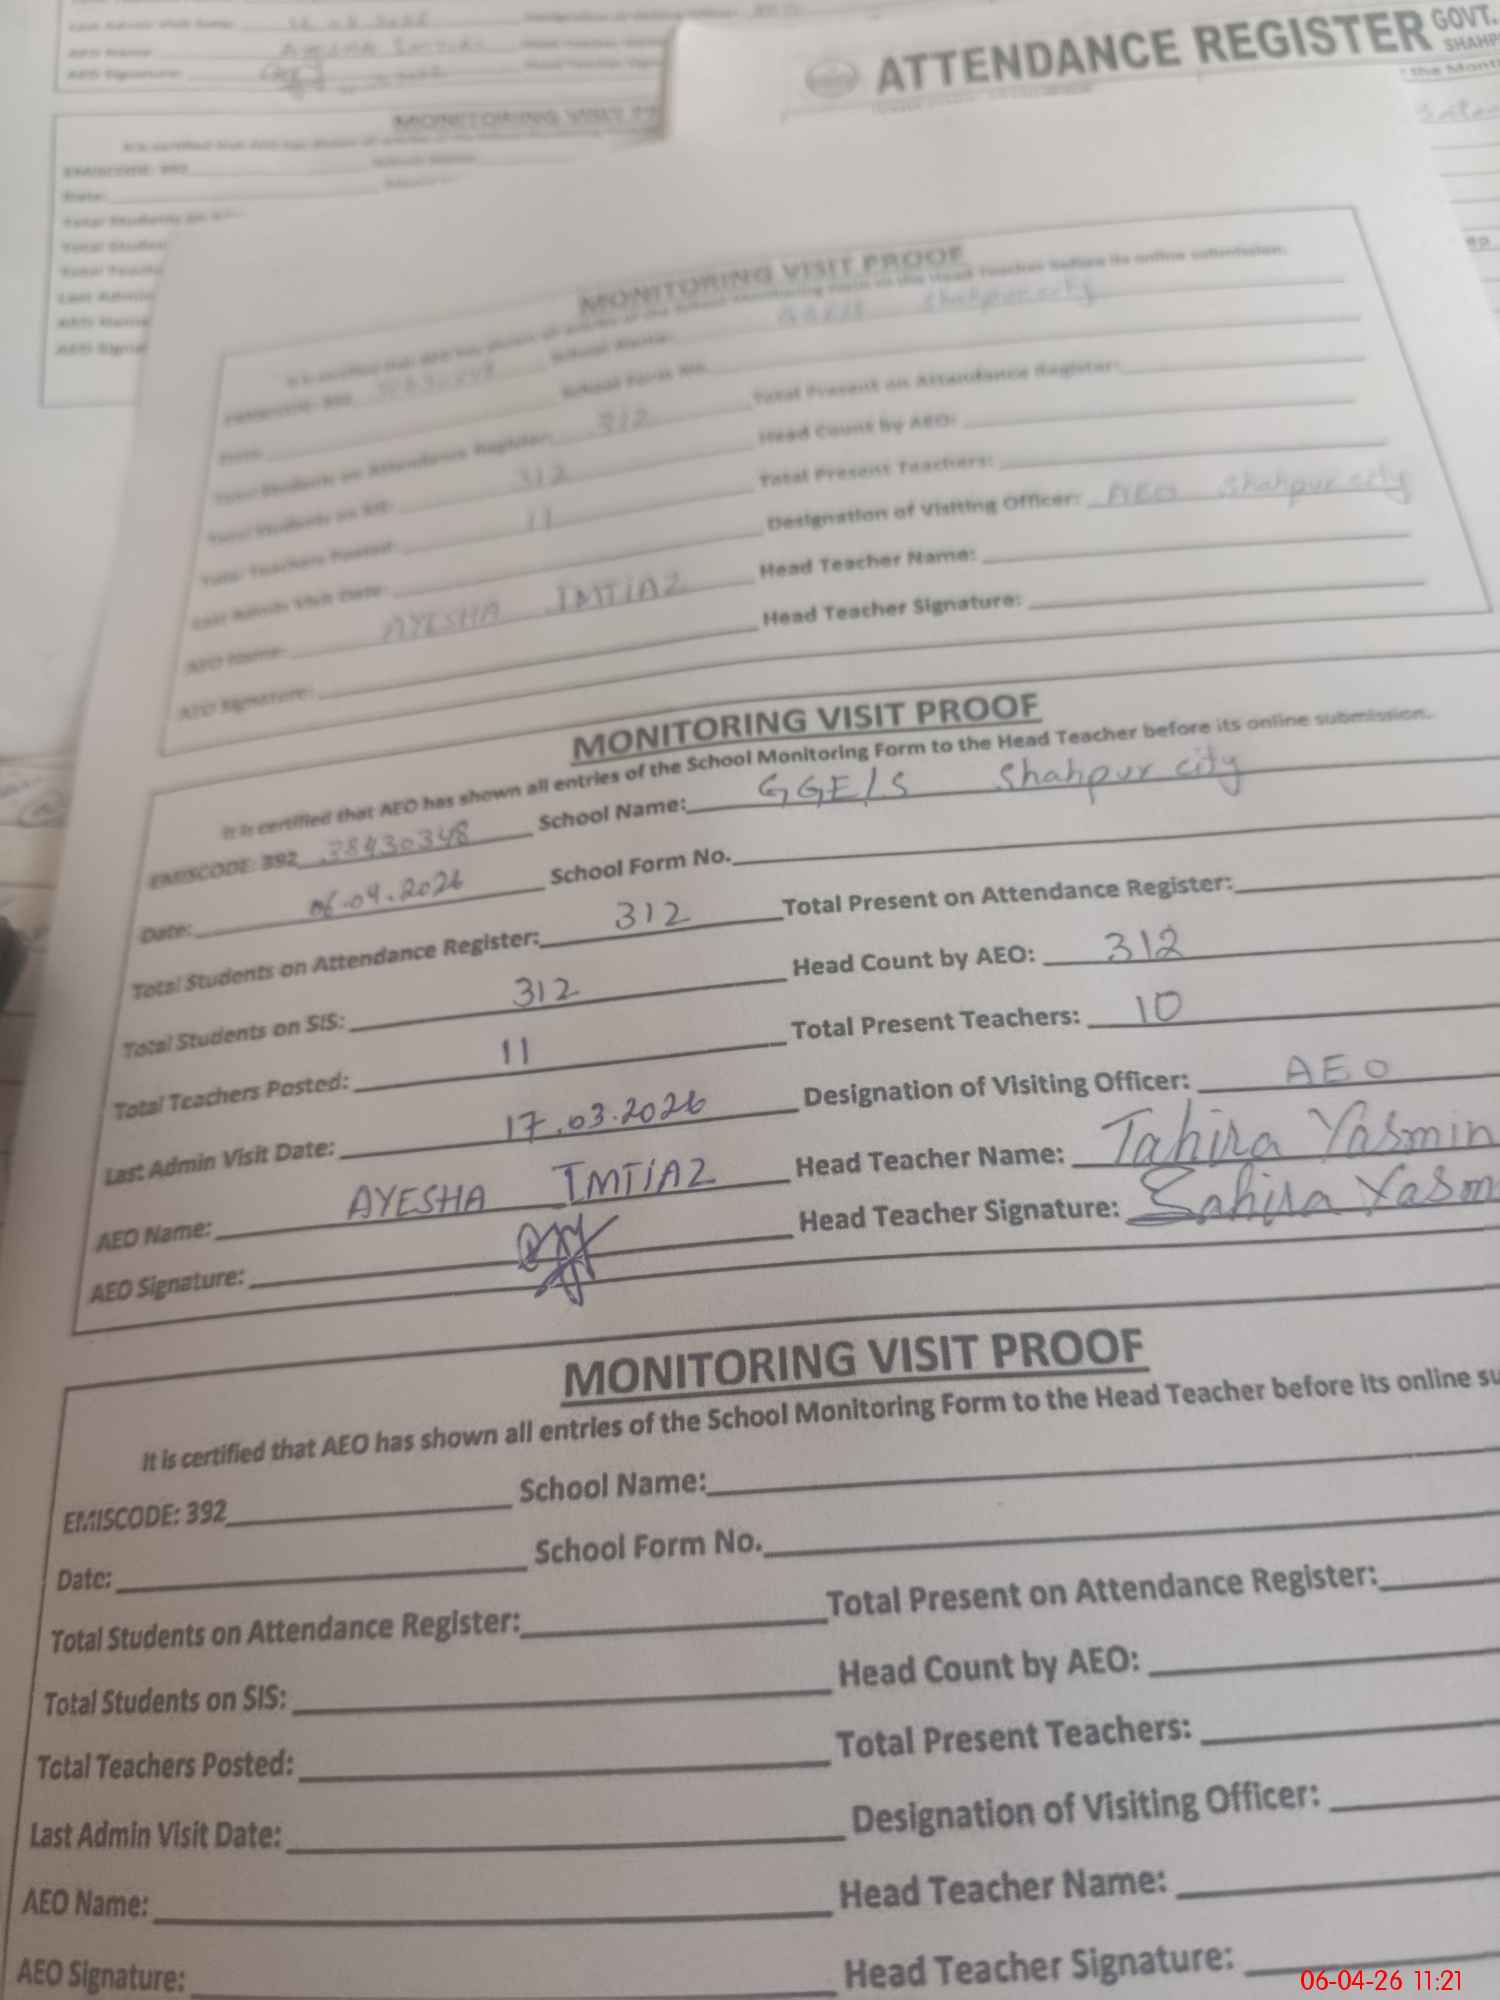 ATTENDANCE REGISTER GOVT.
MONITORING VISIT
EMISCODE: 392
Date:
MONITORING VISIT PROOF
School Name: GGE/S Shahpur city
School Form No.
Total Students on Attendance Register: 312 Total Present on Attendance Register:
Total Students on SIS: 312 Head Count by AEO:
Total Teachers Posted: 11 Total Present Teachers:
Last Admin Visit Date: Designation of Visiting Officer: AEO Shahpur city
AEO Name: AYESHA IMTIAZ Head Teacher Name:
AEO Signature: Head Teacher Signature:
MONITORING VISIT PROOF
It is certified that AEO has shown all entries of the School Monitoring Form to the Head Teacher before its online submission.
EMISCODE: 392 38430348 School Name: GGE/S Shahpur city
Date: 06.04.2026 School Form No.
Total Students on Attendance Register: 312 Total Present on Attendance Register:
Total Students on SIS: 312 Head Count by AEO: 312
Total Teachers Posted: 11 Total Present Teachers: 10
Last Admin Visit Date: 17.03.2026 Designation of Visiting Officer: AEO
AEO Name: AYESHA IMTIAZ Head Teacher Name: Tahira Yasmin
AEO Signature: Head Teacher Signature: Tahira Yasm
MONITORING VISIT PROOF
It is certified that AEO has shown all entries of the School Monitoring Form to the Head Teacher before its online su
EMISCODE: 392 School Name:
Date: School Form No.
Total Students on Attendance Register: Total Present on Attendance Register:
Total Students on SIS: Head Count by AEO:
Total Teachers Posted: Total Present Teachers:
Last Admin Visit Date: Designation of Visiting Officer:
AEO Name: Head Teacher Name:
AEO Signature: Head Teacher Signature:
06-04-26 11:21